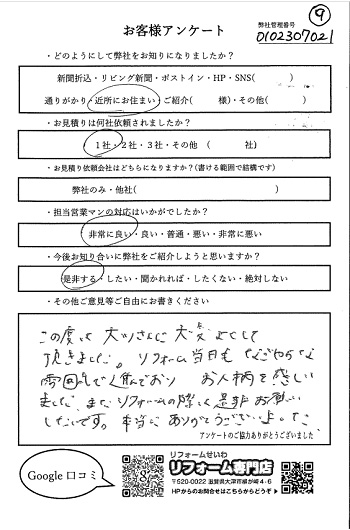 お客様アンケート
弊社管理番号
⑨
0102307021
・どのようにして弊社をお知りになりましたか？
新聞折込・リビング新聞・ポストイン・HP・SNS( )
通りがかり・近所にお住まい・ご紹介( 様)・その他( )
・お見積りは何社依頼されましたか？
1社・2社・3社・その他 ( 社)
・お見積り依頼会社はどちらになりますか？(書ける範囲で結構です)
弊社のみ・他社( )
・担当営業マンの対応はいかがでしたか？
非常に良い・良い・普通・悪い・非常に悪い
・今後お知り合いに弊社をご紹介しようと思いますか？
是非する・したい・聞かれれば・したくない・絶対しない
・その他ご意見等ご自由にお書きください
この度は 大変よくして
頂きました。リフォーム当日も なごやかな
雰囲気で進んでおり お人柄を感じ
ました。また リフォームの際は 是非お願い
したいです。本当に ありがとうございました。
アンケートのご協力ありがとうございました
Google 口コミ
リフォームせいわ
リフォーム専門店
〒520-0022 滋賀県大津市柳が崎4-6
HPからのお問合せはこちらからどうぞ